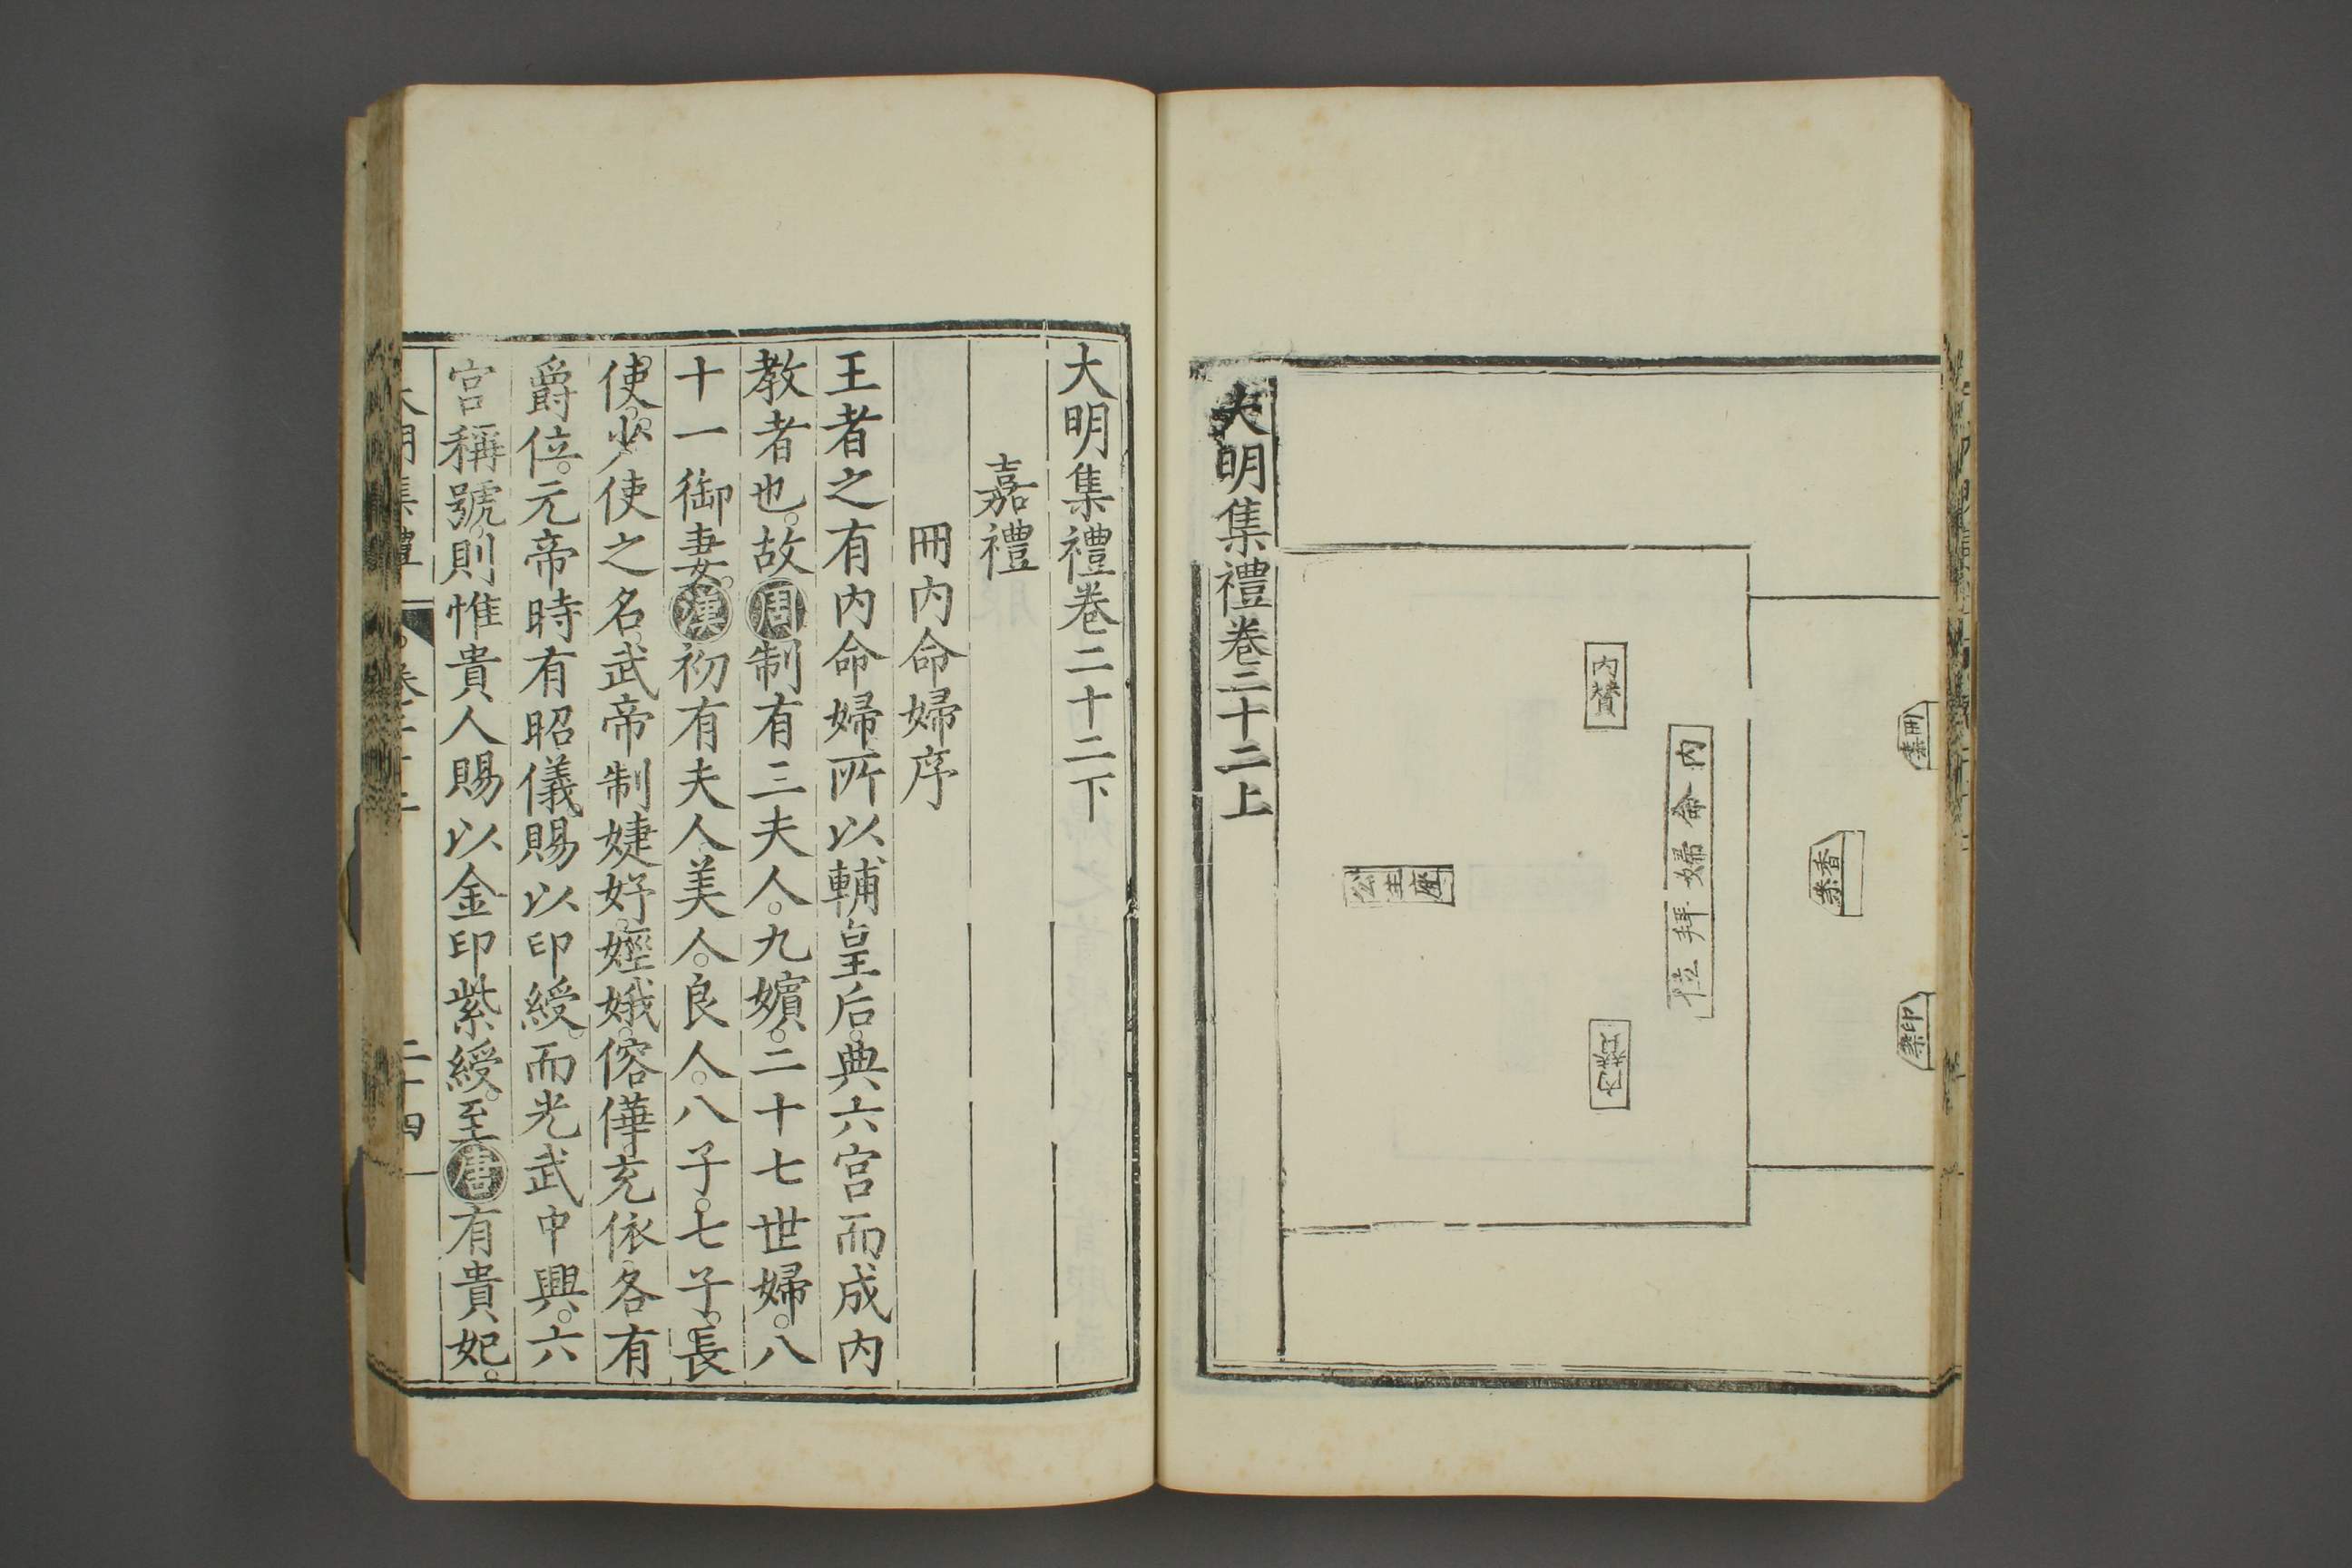 冊案
香案
印案
內命婦拜位
內贊
內贊
公主座
大明集禮卷二十二上
大明集禮卷二十二下
嘉禮
冊內命婦序
王者之有內命婦所以輔皇后。典六宮而成內
教者也。故周制有三夫人。九嬪。二十七世婦。八
十一御妻。漢初有夫人美人。良人。八子。七子。長
使。少使之名。武帝制婕妤。娙娥。傛華。充依。各有
爵位。元帝時有昭儀賜以印綬。而光武中興。六
宮稱號。則惟貴人賜以金印紫綬。至唐有貴妃。
大明集禮 卷二十二 二十四